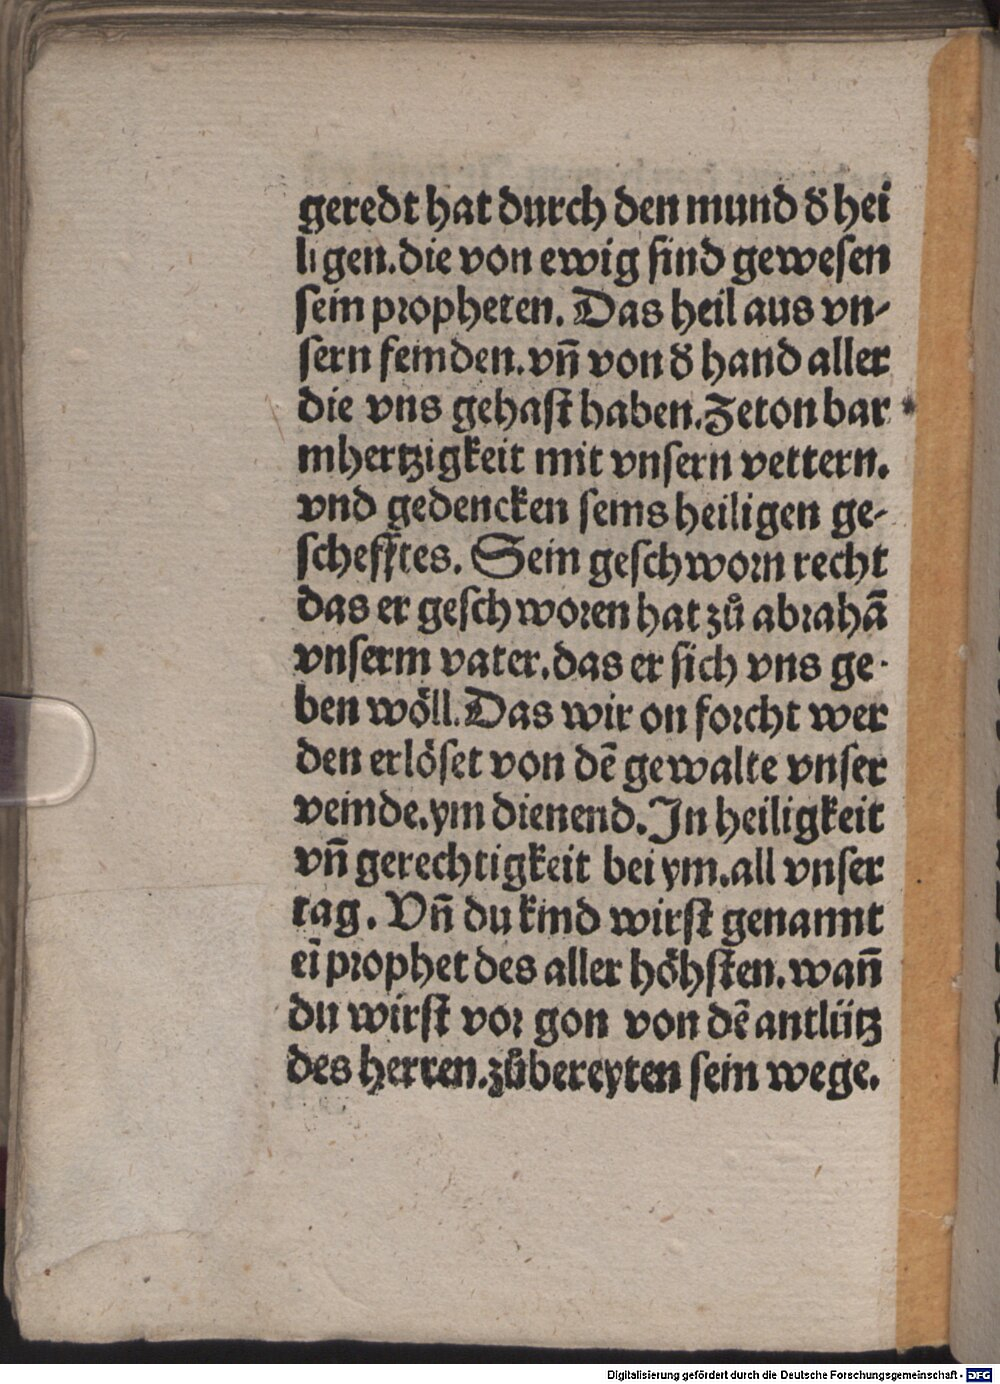 geredt hat durch den mund d̕ hei
ligen. die von ewig sind gewesen
sein propheten. Das heil aus vn-
sern feinden. vñ von d̕ hand aller
die vns gehast haben. Zeton bar
mhertzigkeit mit vnsern vettern.
vnd gedencken seins heiligen ge-
schefftes. Sein geschworn recht
das er geschworen hat zů abrahã
vnserm vater. das er sich vns ge-
ben wöll. Das wir on forcht wer
den erlöset von dẽ gewalte vnser
veinde. ym dienend. In heiligkeit
vñ gerechtigkeit bei ym. all vnser
tag. Vñ du kind wirst genannt
eī prophet des aller höhsten. wañ
du wirst vor gon von dẽ antlütz
des herren. zůbereyten sein wege.
Digitalisierung gefördert durch die Deutsche Forschungsgemeinschaft - DFG